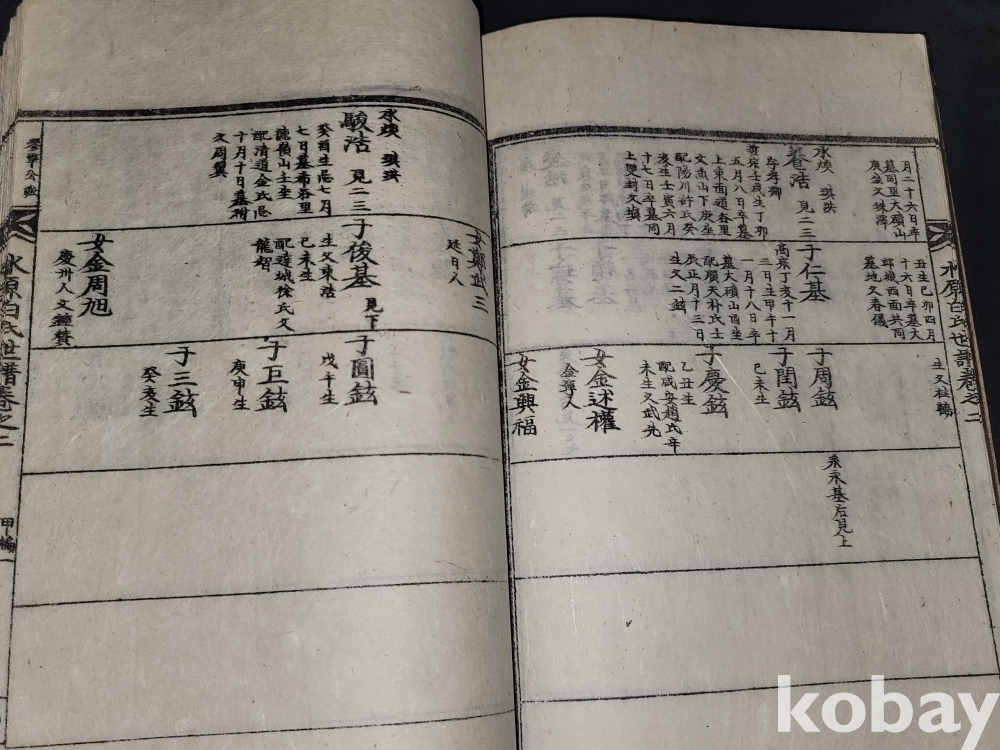 水原白氏世譜卷之二
月二十六日卒
墓同里大磧山
庚坐父珠澤
承煥 琪洪
養浩 見二三
字孝卿
哲宗壬戌生丁卯
五月八日卒墓
上東面道谷里
文魚山下庚坐
配陽川許氏癸
亥生壬寅六月
十七日卒墓同
上雙封父煥
丑生己卯四月
十六日卒墓大
邱嶝西面共同
墓地父春儀
子仁基
高宗丁亥十一月
三日生甲午十
一月十八日卒
墓大磧山酉坐
配順天朴氏壬
辰正月十三日
生父二鉉
生父柱驎
子周鉉
系永基后見上
子閏鉉
己未生
子慶鉉
乙丑生
配咸安趙氏辛
未生父武先
女金述權
金寧人
女金興福
承煥 琪洪
駿浩 見二三
癸酉生忌七月
七日墓希谷里
德嶺山壬坐
配清道金氏忌
十月十日墓祔
父周翼
女鄭武三
延日人
子俊基 見下
生父東浩
己未生
配達城徐氏父
龍智
女金周旭
慶州人父鍾贊
子圓鉉
戊午生
子巨鉉
庚申生
子三鉉
癸亥生
水原白氏世譜卷之二
甲編
kobay